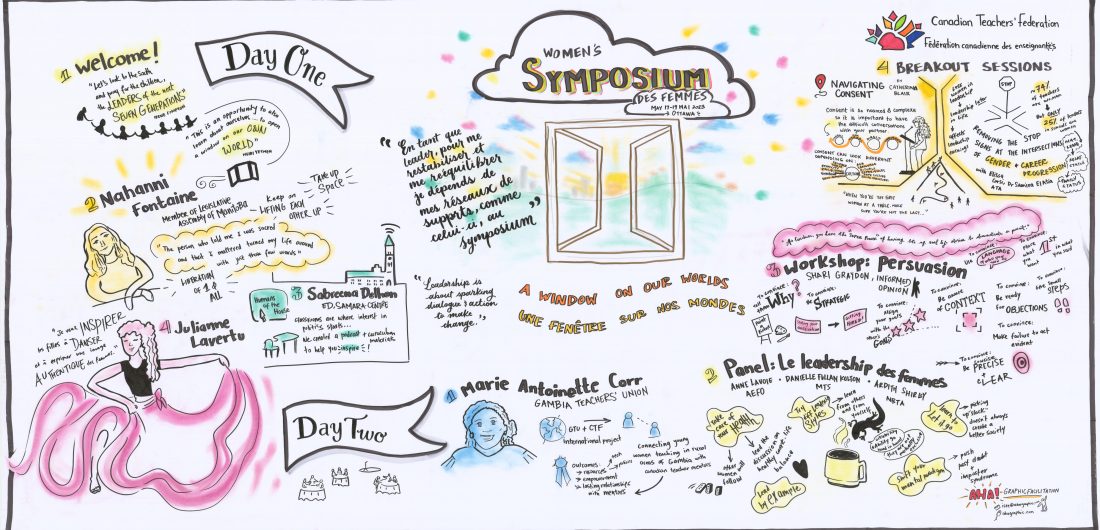 Day One
1 Welcome!
"Let's look to the south
and pray for the children,
the LEADERS of the next
SEVEN GENERATIONS"
"This is an opportunity to also
learn about ourselves → to open
a window on our OWN
WORLD"
2 Nahanni
Fontaine
MEMBER OF LEGISLATIVE
ASSEMBLY OF MANITOBA
Keep on
LIFTING EACH
OTHER UP
TAKE UP
SPACE
"The person who told me I was sacred
and that I mattered turned my life around
with just those few words"
LIBERATION
OF 1 &
ALL
3 Sabreena Delhon
ED, SAMARA CENTRE
Humans of
the House
classrooms are where interest in
politics starts...
We created a podcast + curriculum
materials
to help you inspire!
4 Julianne
Lavertu
"Je veux INSPIRER
les filles à DANSER
et à exprimer une image
AUTHENTIQUE des femmes"
WOMEN'S
SYMPOSIUM
DES FEMMES
MAY 17-19 MAI 2023
OTTAWA
"En tant que
leader, pour me
restabiliser et
me rééquilibrer
je dépends de
mes réseaux de
supports, comme
celui-ci, au
symposium"
"Leadership is
about sparking
dialogue & action
to invoke
change."
A WINDOW ON OUR WORLDS
UNE FENÊTRE SUR NOS MONDES
Canadian Teachers' Federation
Fédération canadienne des enseignantes
4 BREAKOUT SESSIONS
NAVIGATING
CONSENT
BY CATHERINE
BLAIR
Consent is so nuanced & complex
so it is important to have
the difficult conversations
with your partner
CONSENT CAN LOOK DIFFERENT
DEPENDING ON:
CULTURE
STOP
74%
of teachers
are women
BUT ONLY
REMOVING THE STOP
SIGNS AT THE INTERSECTIONS
OF GENDER & CAREER
PROGRESSION
with
ATA
FAMILY
STATUS
"WHEN YOU'RE THE FIRST
WOMAN AT A TABLE, MAKE
SURE YOU'RE NOT THE LAST..."
3 Workshop: Persuasion
SHARI GRAYDON, INFORMED
OPINION
Why?
To convince:
Be STRATEGIC
To convince:
align
your goals
with theirs
GOALS
To convince:
Be aware
of CONTEXT
To convince:
Be ready
for OBJECTIONS
To convince:
use small
STEPS
To convince:
Use LANGUAGE
To convince:
place
what
you want
1st
in what
you say
To convince:
Make failure to act
evident
To convince:
Be PRECISE
+
CLEAR
Day Two
1 Marie Antoinette Corr
GAMBIA TEACHERS' UNION
GTU + CTF
International project
outcomes:
resources
empowerment
lasting relationships
with mentors
connecting young
women teaching in rural
areas of Gambia with
canadian teacher mentors
2 Panel: Le leadership des femmes
ANNE LAVOIE
AEFO
DANIELLE FULLAN KOLTON
MTS
ARDITH SHIRLEY
NBTA
take
care of
your HEALTH
other
women will
follow
lead the
discussion on
healthy work-life
balance
Lead
by EXample
Try
different
styles
learn
from others
and from
yourself
Learn
to
Let it go
picking
up "slack"
doesn't always
create a
better society
Shift your
mental paradigm
push
past doubt
+
imposter
syndrome
AHA!
GRAPHIC FACILITATION